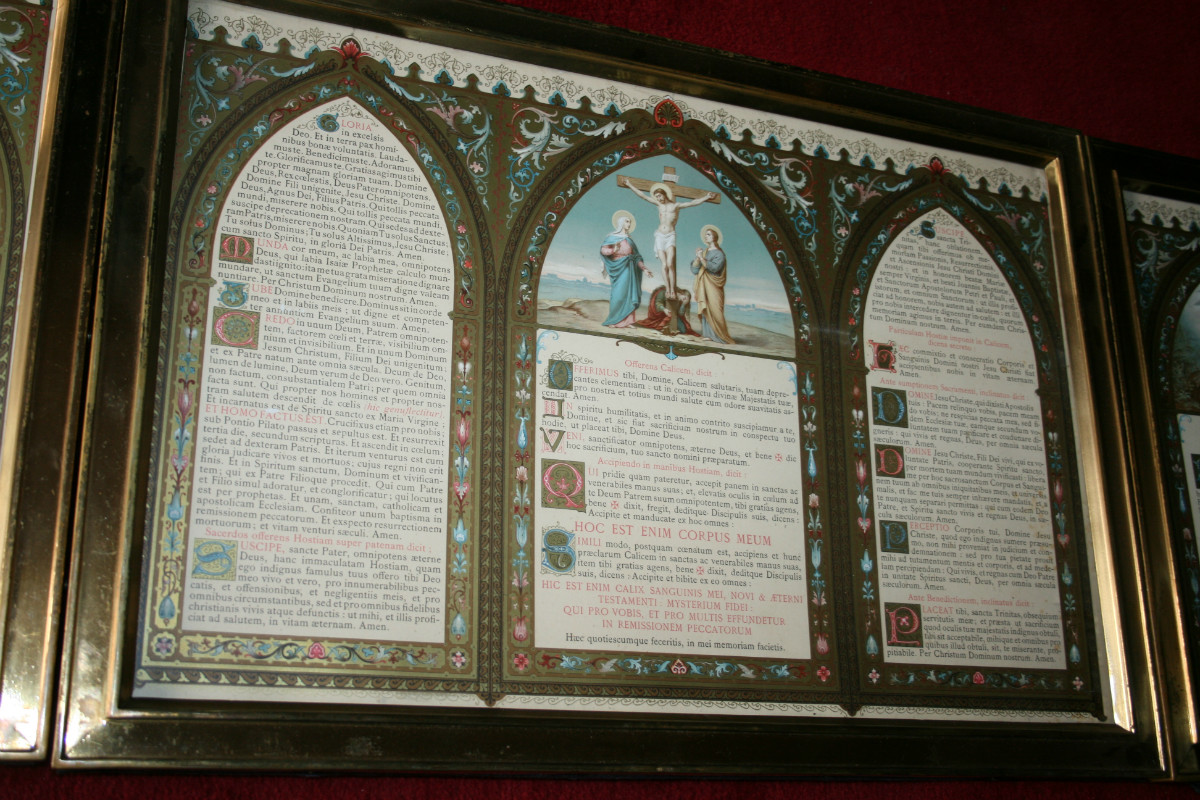 GLORIA
in excelsis
Deo. Et in terra pax homi-
nibus bonæ voluntatis. Lauda-
muste. Benedicimuste. Adoramus
te. Glorificamus te. Gratias agimus tibi
propter magnam gloriam tuam. Domine
Deus, Rex cœlestis, Deus Pater omnipotens.
Domine Fili unigenite, Jesu Christe. Domine
Deus, Agnus Dei, Filius Patris. Qui tollis peccata
mundi, miserere nobis. Qui tollis peccata mundi,
suscipe deprecationem nostram. Qui sedes ad dexte-
ram Patris, miserere nobis. Quoniam Tu solus Sanctus;
Tu solus Dominus; Tu solus Altissimus, Jesu Christe:
cum sancto Spiritu, in gloria Dei Patris. Amen.
MUNDA cor meum, ac labia mea, omnipotens
Deus, qui labia Isaiæ Prophetæ calculo mun-
dasti ignito: ita me tua grata miseratione dignare
mundare, ut sanctum Evangelium tuum digne valeam
nuntiare. Per Christum Dominum nostrum. Amen.
JUBE Domine benedicere. Dominus sit in corde
meo et in labiis meis; ut digne et competen-
ter annuntiem Evangelium suum. Amen.
CREDO in unum Deum, Patrem omnipoten-
tem, factorem cœli et terræ, visibilium om-
nium et invisibilium. Et in unum Dominum
Jesum Christum, Filium Dei unigenitum;
et ex Patre natum ante omnia sæcula. Deum de Deo,
lumen de lumine, Deum verum de Deo vero. Genitum,
non factum, consubstantialem Patri: per quem omnia
facta sunt. Qui propter nos homines et propter nos-
tram salutem descendit de cœlis hic genuflectitur.
Et incarnatus est de Spiritu sancto ex Maria Virgine;
ET HOMO FACTUS EST. Crucifixus etiam pro nobis;
sub Pontio Pilato passus et sepultus est. Et resurrexit
tertia die, secundum scripturas. Et ascendit in cœlum;
sedet ad dexteram Patris. Et iterum venturus est cum
gloria judicare vivos et mortuos; cujus regni non erit
finis. Et in Spiritum sanctum, Dominum et vivifican-
tem; qui ex Patre Filioque procedit. Qui cum Patre
et Filio simul adoratur, et conglorificatur; qui locutus
est per prophetas. Et unam, sanctam, catholicam et
apostolicam Ecclesiam. Confiteor unum baptisma in
remissionem peccatorum. Et exspecto resurrectionem
mortuorum; et vitam venturi sæculi. Amen.
Sacerdos offerens Hostiam super patenam dicit:
SUSCIPE, sancte Pater, omnipotens æterne
Deus, hanc immaculatam Hostiam, quam
ego indignus famulus tuus offero tibi Deo
meo vivo et vero, pro innumerabilibus pec-
catis, et offensionibus, et negligentiis meis, et pro
omnibus circumstantibus, sed et pro omnibus fidelibus
christianis vivis atque defunctis: ut mihi, et illis profi-
ciat ad salutem, in vitam æternam. Amen.
Offerens Calicem, dicit:
OFFERIMUS tibi, Domine, Calicem salutaris, tuam depre-
cantes clementiam: ut in conspectu divinæ Majestatis tuæ,
pro nostra et totius mundi salute cum odore suavitatis as-
cendat. Amen.
IN spiritu humilitatis, et in animo contrito suscipiamur a te,
Domine, et sic fiat sacrificium nostrum in conspectu tuo
hodie, ut placeat tibi, Domine Deus.
VENI, sanctificator omnipotens, æterne Deus, et bene ✠ dic
hoc sacrificium, tuo sancto nomini præparatum.
Accipiendo in manibus Hostiam, dicit:
QUI pridie quam pateretur, accepit panem in sanctas ac
venerabiles manus suas; et, elevatis oculis in cœlum ad
te Deum Patrem suum omnipotentem, tibi gratias agens,
bene ✠ dixit, fregit, deditque Discipulis suis, dicens:
Accipite et manducate ex hoc omnes:
HOC EST ENIM CORPUS MEUM
SIMILI modo, postquam cœnatum est, accipiens et hunc
præclarum Calicem in sanctas ac venerabiles manus suas,
item tibi gratias agens, bene ✠ dixit, deditque Discipulis
suis, dicens: Accipite et bibite ex eo omnes:
HIC EST ENIM CALIX SANGUINIS MEI, NOVI & ÆTERNI
TESTAMENTI: MYSTERIUM FIDEI:
QUI PRO VOBIS, ET PRO MULTIS EFFUNDETUR
IN REMISSIONEM PECCATORUM
Hæc quotiescumque feceritis, in mei memoriam facietis.
SUSCIPE
sancta Tri-
nitas, hanc oblationem,
quam tibi offerimus ob me-
moriam Passionis, Resurrectionis,
et Ascensionis Jesu Christi Domini
nostri: et in honorem beatæ Mariæ
semper Virginis, et beati Joannis Baptistæ,
et sanctorum Apostolorum Petri et Pauli, et
istorum, et omnium Sanctorum: ut illis profi-
ciat ad honorem, nobis autem ad salutem: et illi
pro nobis intercedere dignentur in cœlis, quorum
memoriam agimus in terris. Per eumdem Chris-
tum Dominum nostrum. Amen.
Particulam Hostiæ imponit in Calicem,
HÆC commixtio et consecratio Corporis et
Sanguinis Domini nostri Jesu Christi fiat
accipientibus nobis in vitam æternam.
Amen.
Ante sumptionem Sacramenti, inclinatus dicit:
DOMINE Jesu Christe, qui dixisti Apostolis
tuis: Pacem relinquo vobis, pacem meam
do vobis: ne respicias peccata mea, sed fi-
dem Ecclesiæ tuæ, eamque secundum vo-
luntatem tuam pacificare et coadunare di-
gneris: qui vivis et regnas, Deus, per omnia
sæculorum. Amen.
DOMINE Jesu Christe, Fili Dei vivi, qui ex vo-
luntate Patris, cooperante Spiritu sancto,
per mortem tuam mundum vivificasti: libera
me per hoc sacrosanctum Corpus et Sangui-
nem tuum ab omnibus iniquitatibus meis, et universis
malis, et fac me tuis semper inhærere mandatis, et a
te nunquam separari permittas: qui cum eodem Deo
Patre, et Spiritu sancto vivis et regnas Deus, in sæ-
cula sæculorum. Amen.
PERCEPTIO Corporis tui, Domine Jesu
Christe, quod ego indignus sumere præsu-
mo, non mihi proveniat in judicium et con-
demnationem: sed pro tua pietate prosit
mihi ad tutamentum mentis et corporis, et ad mede-
lam percipiendam: Qui vivis, et regnas cum Deo Patre
in unitate Spiritus sancti, Deus, per omnia sæcula
sæculorum. Amen.
Ante Benedictionem, inclinatus dicit:
PLACEAT tibi, sancta Trinitas, obsequium
servitutis meæ; et præsta ut sacrificium
quod oculis tuæ majestatis indignus obtuli,
tibi sit acceptabile, mihique et omnibus pro
quibus illud obtuli, sit, te miserante, pro-
pitiabile. Per Christum Dominum nostrum. Amen.